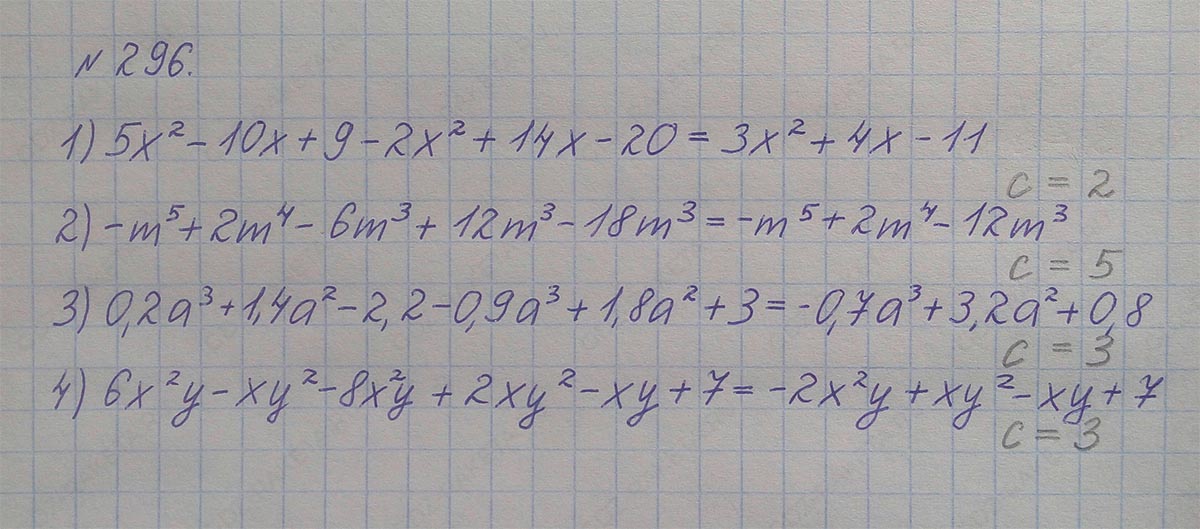 № 296.
1) 5x² - 10x + 9 - 2x² + 14x - 20 = 3x² + 4x - 11
c = 2
2) -m⁵ + 2m⁴ - 6m³ + 12m³ - 18m³ = -m⁵ + 2m⁴ - 12m³
c = 5
3) 0,2a³ + 1,4a² - 2,2 - 0,9a³ + 1,8a² + 3 = -0,7a³ + 3,2a² + 0,8
c = 3
4) 6x²y - xy² - 8x²y + 2xy² - xy + 7 = -2x²y + xy² - xy + 7
c = 3